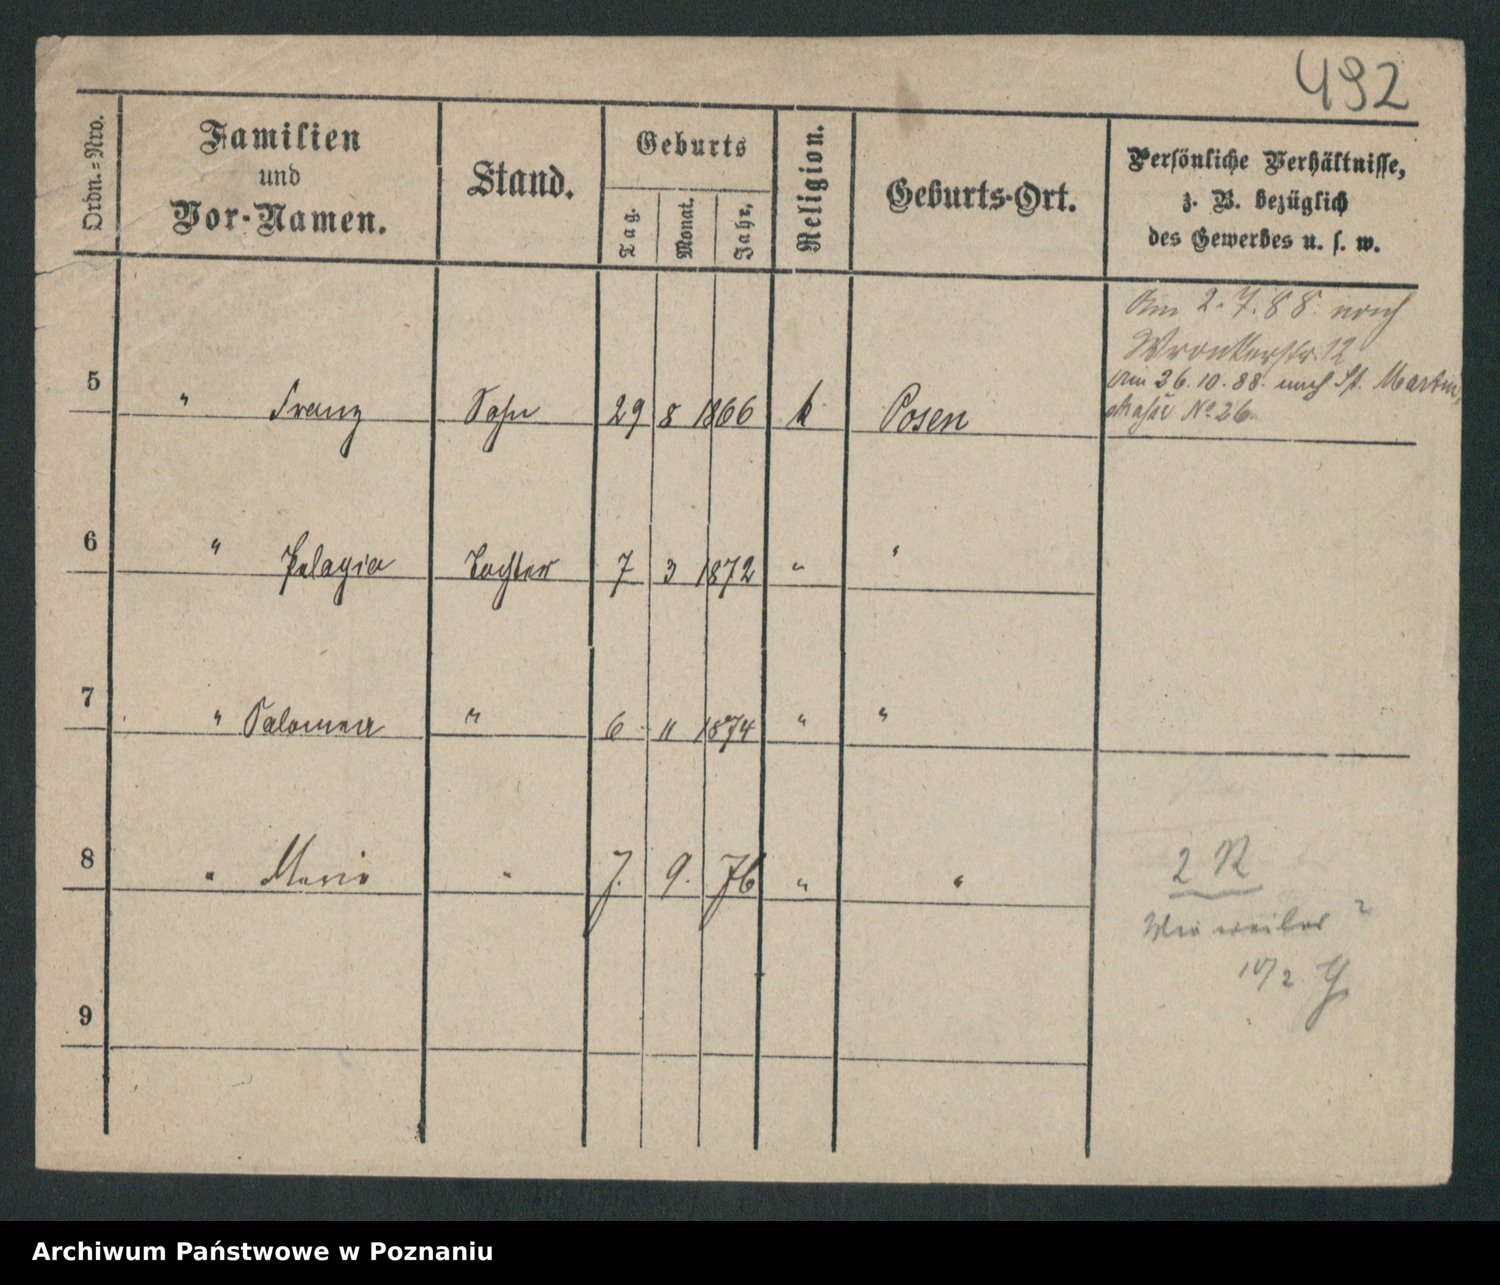 492
Ordn.=Nro.
Familien
und
Vor-Namen.
Stand.
Geburts
Tag.
Monat.
Jahr.
Religion.
Geburts-Ort.
Persönliche Verhältnisse,
z. B. bezüglich
des Gewerbes u. s. w.
Am 2.7.88. nach
Wronkerstr. 12
Am 26.10.88. nach St. Martin
straße No 26.
5 " Franz Sohn 29 8 1866 k Posen
6 " Pelagia Tochter 7 3 1872 " "
7 " Salomea " 6 11 1874 " "
8 " Maria " 7. 9. 76 " "
2
9
Archiwum Państwowe w Poznaniu